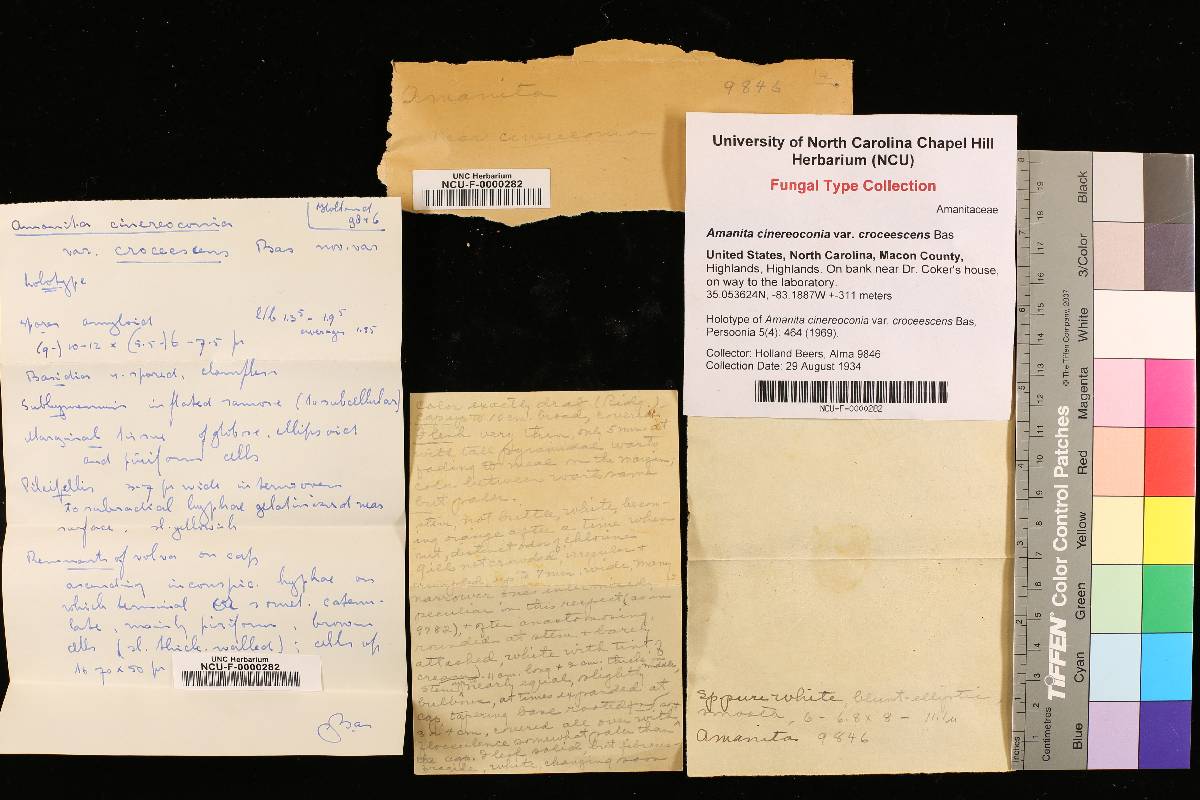 Amanita 9846
near cinereoconia
UNC Herbarium
NCU-F-0000282
University of North Carolina Chapel Hill
Herbarium (NCU)
Fungal Type Collection
Amanitaceae
Amanita cinereoconia var. croceescens Bas
United States, North Carolina, Macon County,
Highlands, Highlands. On bank near Dr. Coker's house,
on way to the laboratory.
35.053624N, -83.1887W +-311 meters
Holotype of Amanita cinereoconia var. croceescens Bas,
Persoonia 5(4): 464 (1969).
Collector: Holland Beers, Alma 9846
Collection Date: 29 August 1934
NCU-F-0000282
Holland
9846
Amanita cinereoconia
var. croceescens Bas nov. var
holotype
spores amyloid l/b 1.35 - 1.95
average 1.85
(9-) 10-12 x (5.5-) 6 - 7.5 µ
Basidia 4-spored, clampless
Subhymenium inflated ramose (to subcellular)
Marginal tissue globose, ellipsoid
and piriform cells
Pileipellis 3-7 µ wide interwoven
to subradial hyphae gelatinized near
surface, sl. yellowish
Remnants of volva on cap
ascending inconspic. hyphae on
which terminal or somet. caten-
late, mainly piriform, brown
cells (sl. thick-walled); cells up
to 70 x 50 µ
UNC Herbarium
NCU-F-0000282
Bas
color exactly drab (Ridg.)
Cap up to 10 cm. broad, covered
Flesh very thin, only 5 mm at
with tall pyramidal warts
fading to meal on the margin,
color between warts same
but paler.
stem, not brittle, white, becom-
ing orange after a time when
cut, distinct odor of chlorine
gills not crowded, irregular +
crumpled, up to 7 mm. wide, many
narrower ones intermixed,
peculiar in this respect (as in
9782), + often anastomosing,
rounded at stem + barely
attached, white with tint of
cream. 11 cm. long + 2 cm. thick
stem nearly equal, slightly
bulbous, at times expanded at
cap, tapering base rooted
3 x 4 cm, covered all over with
flocculence somewhat paler than
the cap. Flesh solid, but fibrous
fragile, white changing soon
Sp pure white, blunt-elliptic
smooth, 6 - 6.8 x 8 - 11.1µ
Amanita 9846
TIFFEN Color Control Patches
© The Tiffen Company, 2007
Inches
Centimetres
Blue
Cyan
Green
Yellow
Red
Magenta
White
3/Color
Black